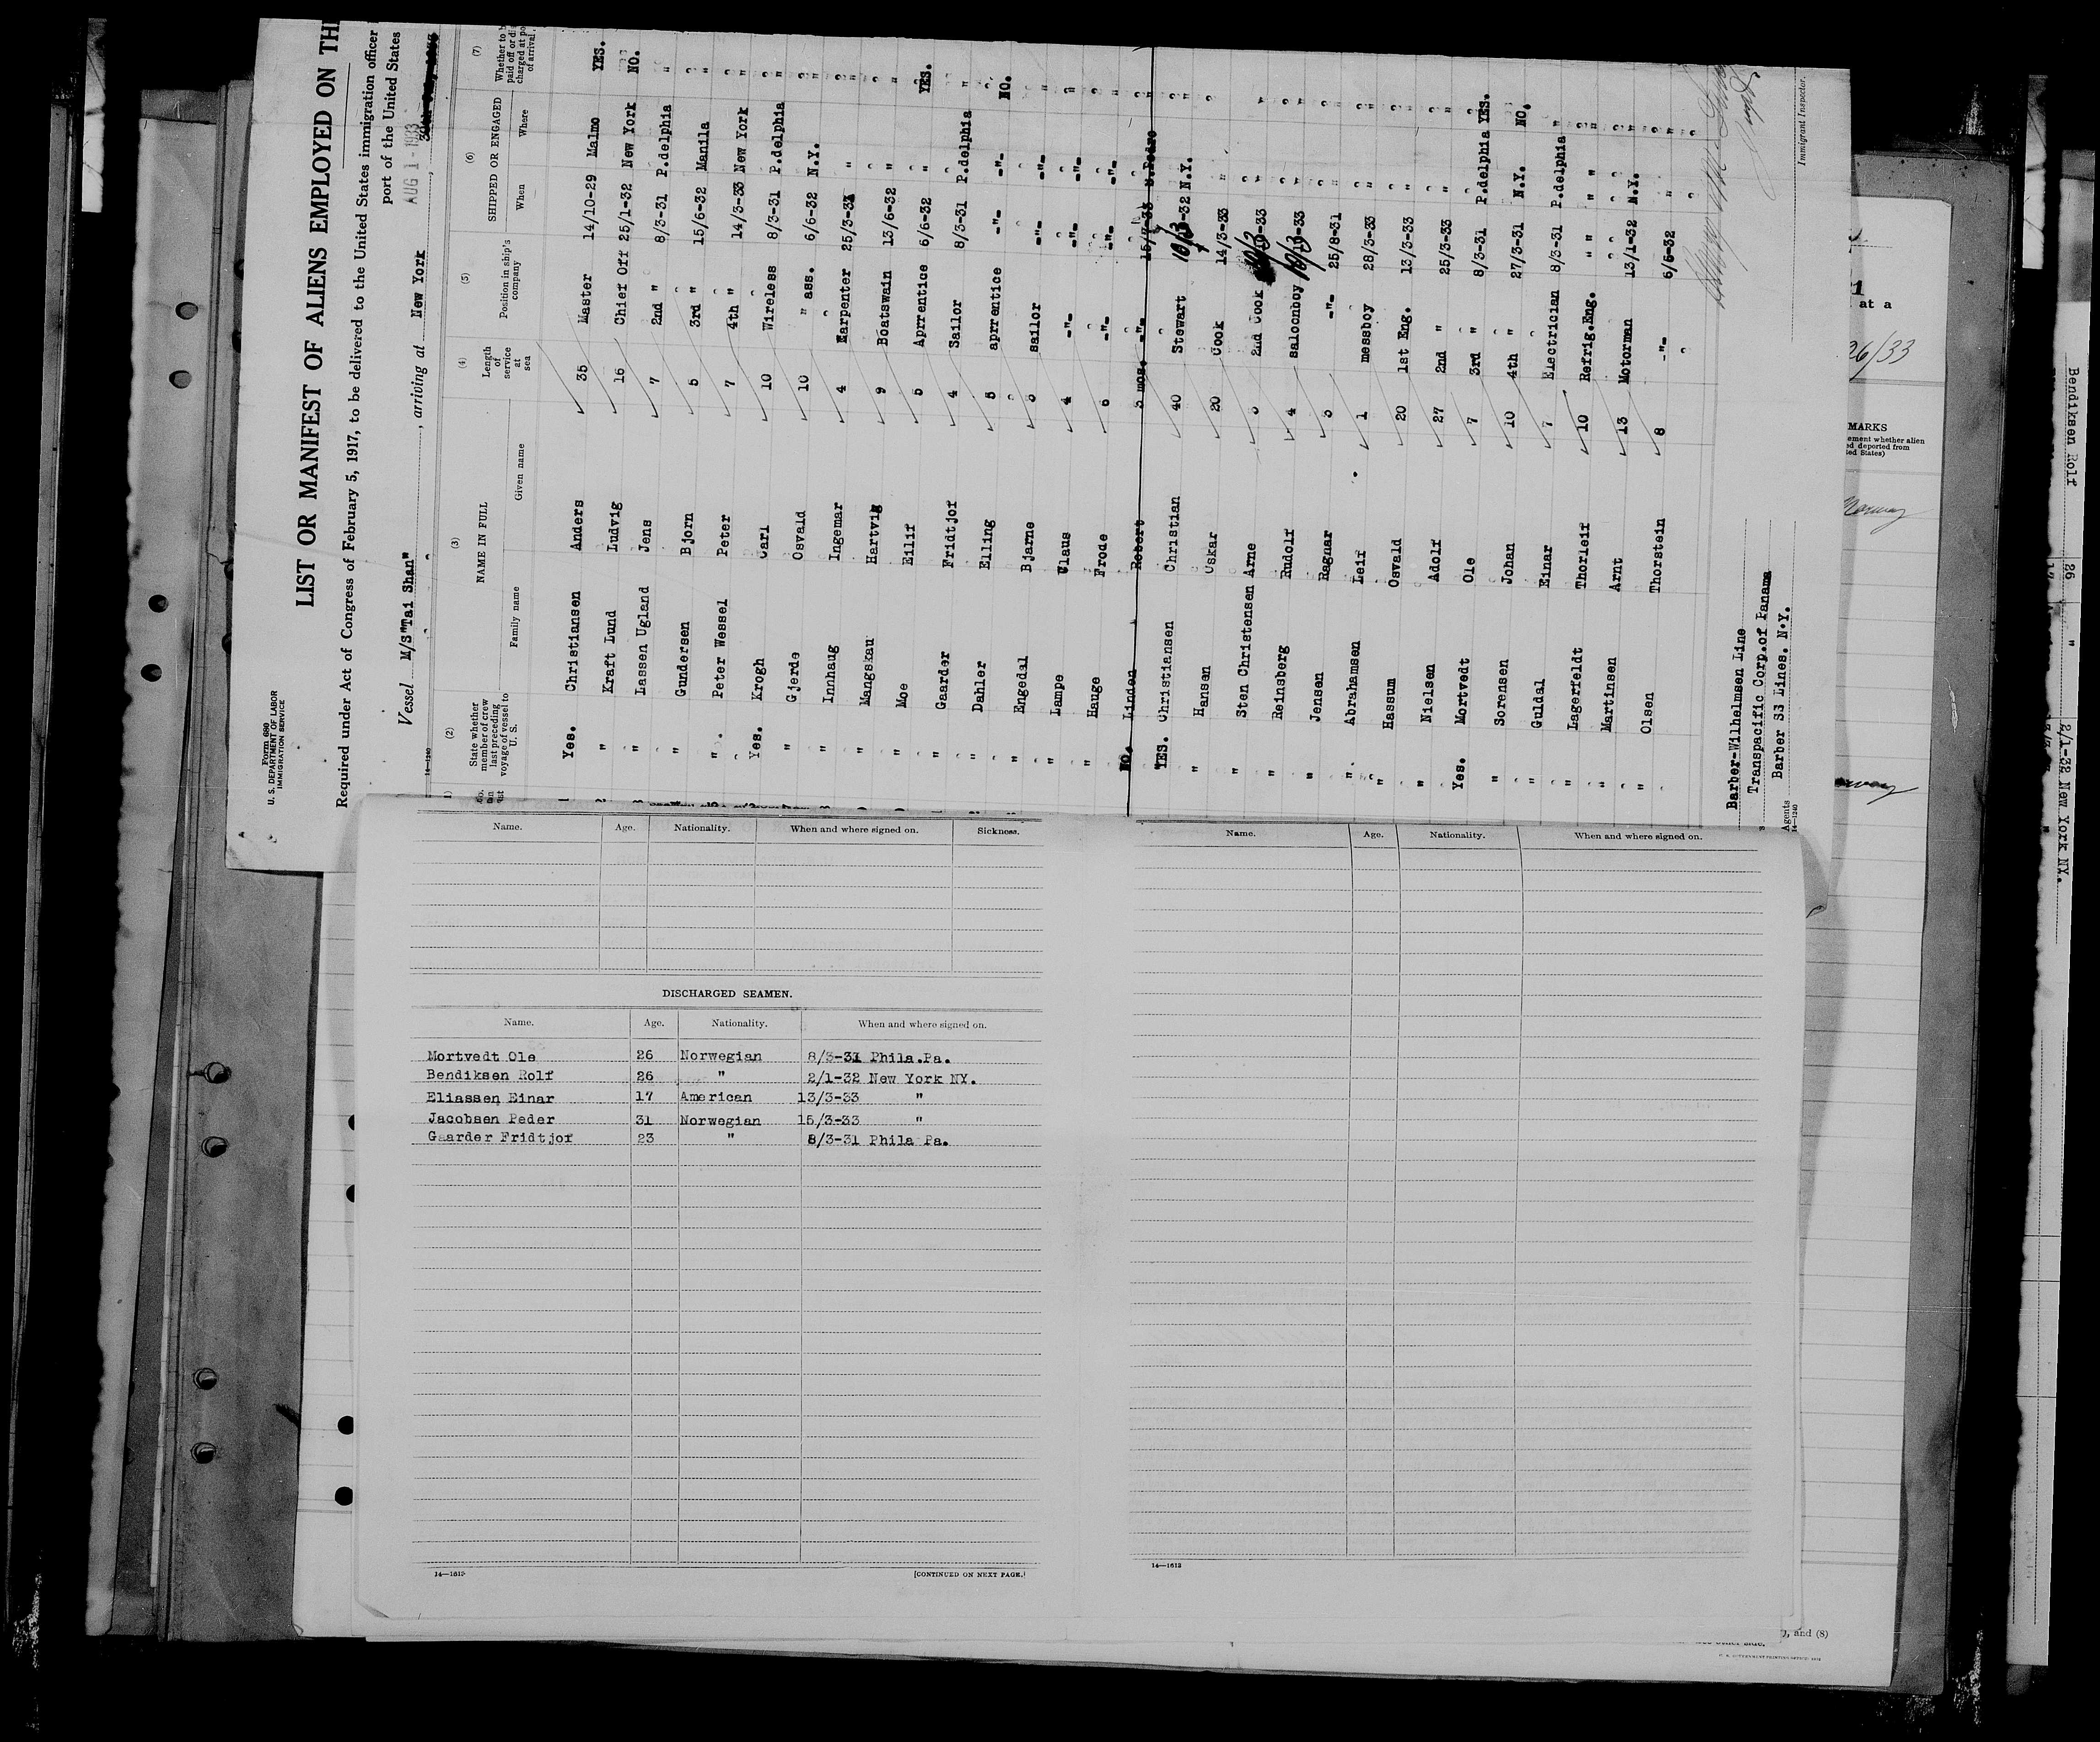 Form 689
U. S. DEPARTMENT OF LABOR
IMMIGRATION SERVICE
LIST OR MANIFEST OF ALIENS EMPLOYED ON TH
Required under Act of Congress of February 5, 1917, to be delivered to the United States immigration officer
port of the United States
Vessel M/S"Tai Shan" , arriving at New York , AUG 1 - 1933
14-1240
(2) (3) (4) (5) (6) (7)
State whether member of crew last preceding voyage of vessel to U. S.
NAME IN FULL
Family name Given name
Length of service at sea
Position in ship's company
SHIPPED OR ENGAGED
When Where
Yes. Christiansen Anders 35 Master 14/10-29 Malmo YES.
" Kraft Lund Ludvig 16 Chier Off 25/1-32 New York NO.
" Lassen Ugland Jens 7 2nd " 8/3-31 P.delphia "
" Gundersen Bjorn 5 3rd " 15/6-32 Manila "
" Peter Wessel Peter 7 4th " 14/3-33 New York "
Yes. Krogh Carl 10 Wireless 8/3-31 P.delphia "
" Gjerde Osvald 10 " ass. 6/6-32 N.Y. "
" Innhaug Ingemar 4 Earpenter 25/3-31 " "
" Mangskau Hartvig 9 Boatswain 13/6-32 " "
" Moe Eilif 5 Aprrentice 6/6-32 " YES.
" Gaarder Fridtjof 4 Sailor 8/3-31 P.delphia "
" Dahler Elling 5 aprrentice -"- -"- NO.
" Engedal Bjarne 3 sailor -"- -"- "
" Lampe Claus 4 -"- -"- -"- "
" Hauge Frode 6 -"- -"- -"- "
NO. Linden Robert 3 mos. -"- 15/7-33 S.Pedro "
YES. Christiansen Christian 40 Stewart 10/3-32 N.Y. "
" Hansen Oskar 20 Cook 14/3-33 "
" Sten Christensen Arne 2nd Cook 10/3
" Reinsberg Rudolf 4 saloonboy 10/3
" Jensen Ragnar 3 -"- 25/8-31 " "
" Abrahamsen Leif 1 messboy 28/3-33 " "
" Hassum Osvald 20 1st Eng. 13/3-33 " "
" Nielsen Adolf 27 2nd " 25/3-33 " "
Yes. Mortvedt Ole 7 3rd " 8/3-31 P.delphia YES.
" Sorensen Johan 10 4th " 27/3-31 N.Y. NO.
" Guldal Einar 7 Electrician 8/3-31 P.delphia "
" Lagerfeldt Thorleif 10 Refrig.Eng. " " "
" Martinsen Arnt 13 Motorman 13/1-32 N.Y. "
" Olsen Thorstein 8 -"- 6/6-32 " "
Barber-Wilhelmsen Line
Transpacific Corp.of Panama
Agents Barber SS Lines. N.Y.
14-1240
Immigrant Inspector.
at a
26/33
MARKS
ement whether alien
ed deported from
ted States)
Norway
Bendiksen Rolf 26 " 2/1-32 New York NY.
Name. Age. Nationality. When and where signed on. Sickness.
DISCHARGED SEAMEN.
Name. Age. Nationality. When and where signed on.
Mortvedt Ole 26 Norwegian 8/3-31 Phila.Pa.
Bendiksen Rolf 26 " 2/1-32 New York NY.
Eliassen Einar 17 American 13/3-33 "
Jacobsen Peder 31 Norwegian 15/3-33 "
Gaarder Fridtjof 23 " 8/3-31 Phila Pa.
14—1613 [CONTINUED ON NEXT PAGE.]
Name. Age. Nationality. When and where signed on.
14—1613
, and (8)